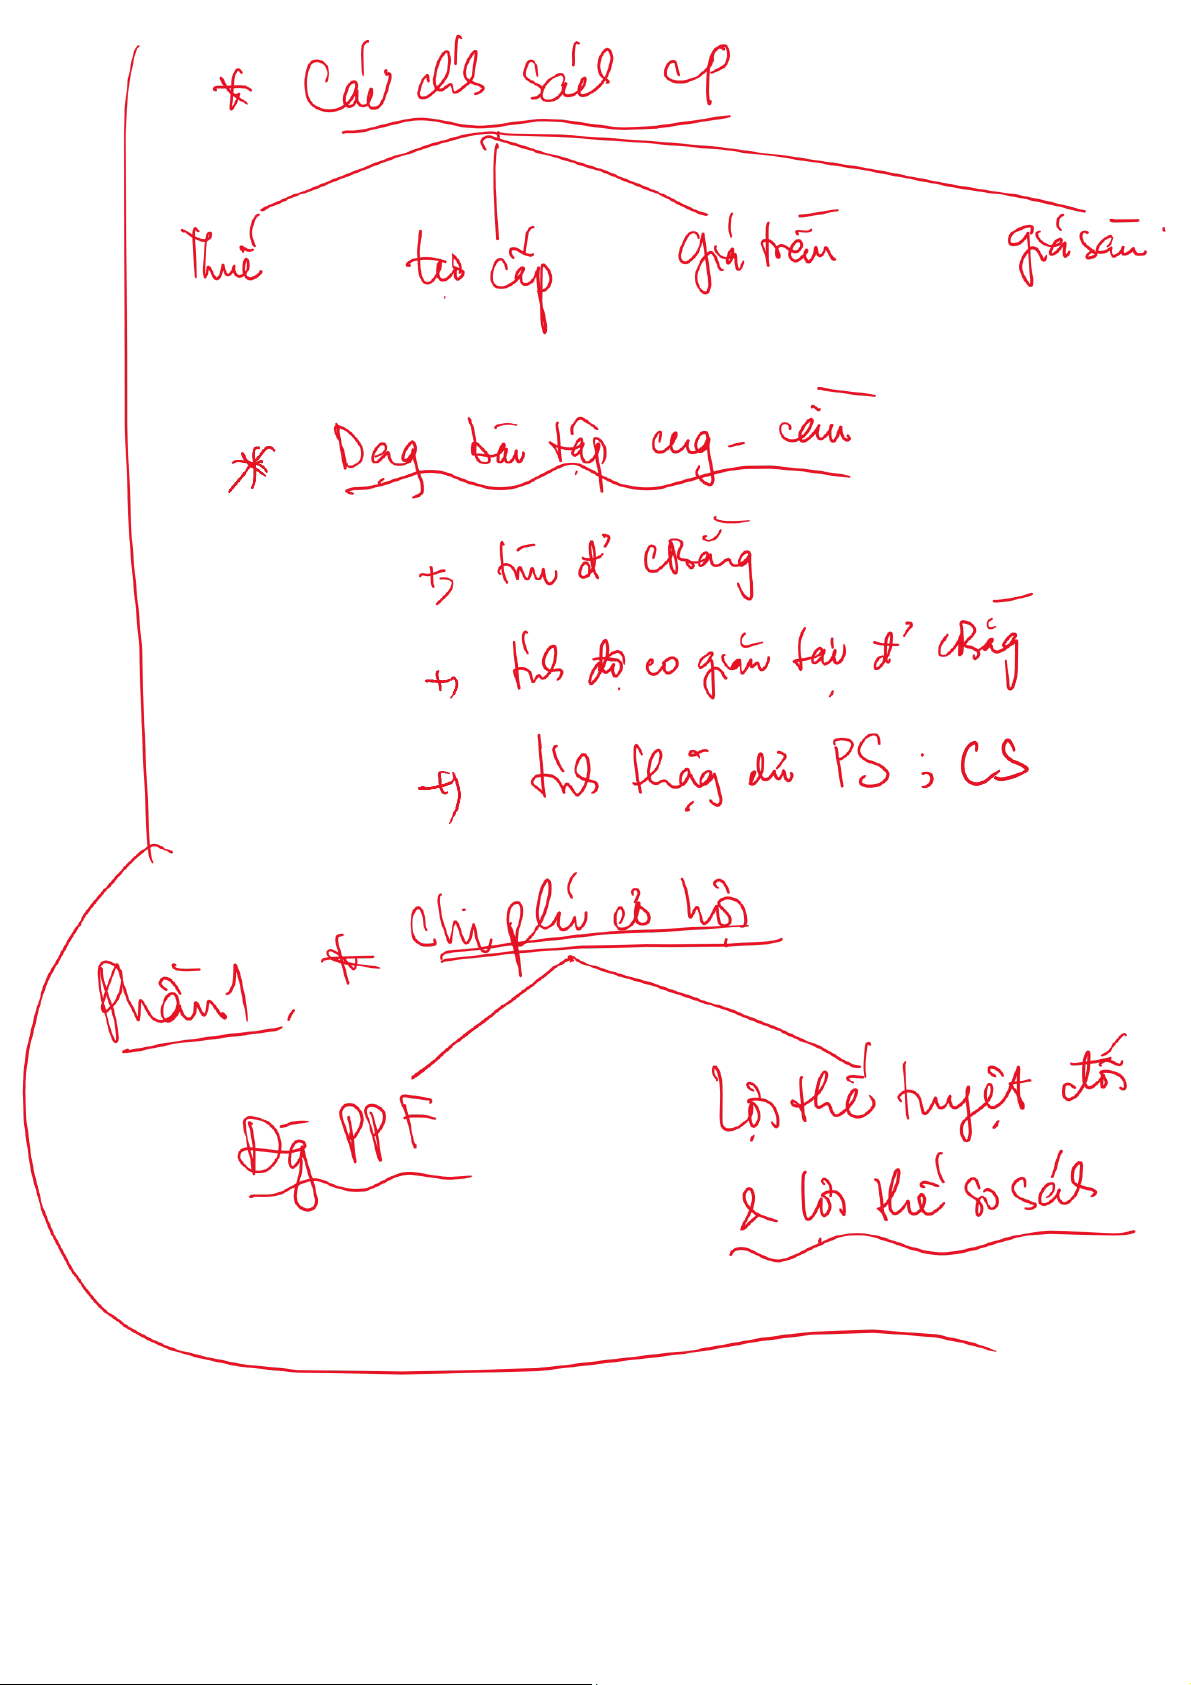 * Các chính sách CP
Thuế trợ cấp giá trần giá sàn
* Dạng bài tập cung - cầu
+, tìm đ' CBằng
+, tính độ co giãn tại đ' CBằng
+, tính thặng dư PS ; CS
Phần 1. * Chi phí cơ hội
Đg PPF
Lợi thế tuyệt đối
& lợi thế so sánh